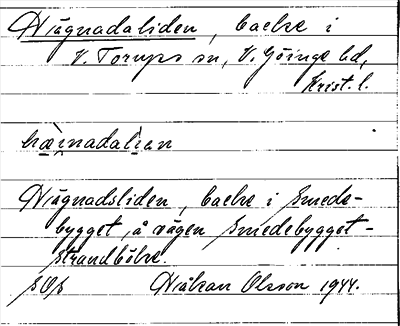 Hägnadaliden, backe i
V. Torups sn, V. Göinge hd,
Krist. l.
hä̀inadalían
Hägnadsliden, backe i Smede-
bygget, å vägen Smedebygget-
Strandböke.
SOS Håkan Olsson 1944.